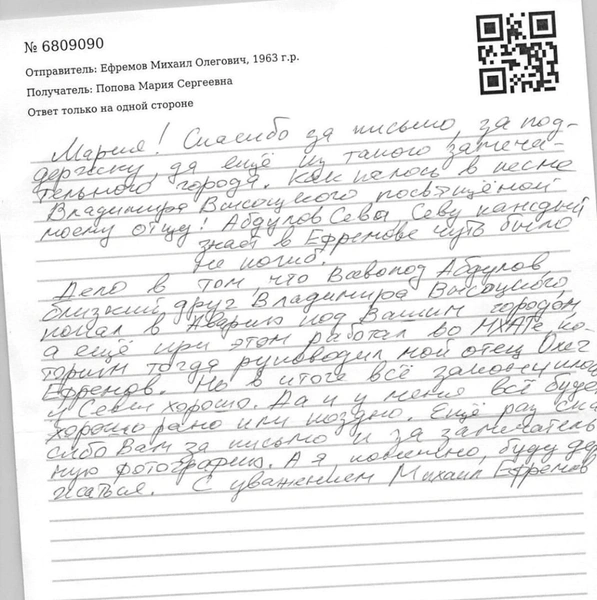 № 6809090
Отправитель: Ефремов Михаил Олегович, 1963 г.р.
Получатель: Попова Мария Сергеевна
Ответ только на одной стороне
Мария! Спасибо за письмо, за под-
держку, да ещё из такого замеча-
тельного города. Как пелось в песне
Владимира Высоцкого посвящёной
моему отцу! Абдулов Сева, Севу каждый
знает в Ефремове чуть было
не погиб.
Дело в том, что Всевопод Абдулов,
близкий друг Владимира Высоцкого,
попал в Аварию под Вашим городом
а ещё при этом работал во МХАТе, ко-
торым тогда руководил мой отец Олег
Ефремов. Но в итоге всё закончилось
у Севы хорошо. Да и у меня всё буде
хорошо рано или поздно. Ещё раз Спа
сибо Вам за письмо и за замечатель
ную фотографию. А я конечно, буду дер
жаться. С уважением Михаил Ефремов